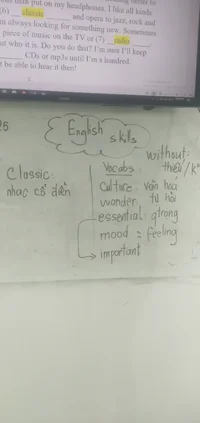 put on my headphones. I like all kinds
(6) classic and opera to jazz, rock and
always looking for something new. Sometimes
piece of music on the TV or (7) radio
out who it is. Do you do that? I'm sure I'll keep
CDs or mp3s until I'm a hundred.
be able to hear it then!
25
English skills
without:
thiếu / k°
Classic:
nhạc cổ điển
Vocabs
Culture: văn hóa
wonder: tự hỏi
essential: qtrọng
mood = feeling
important